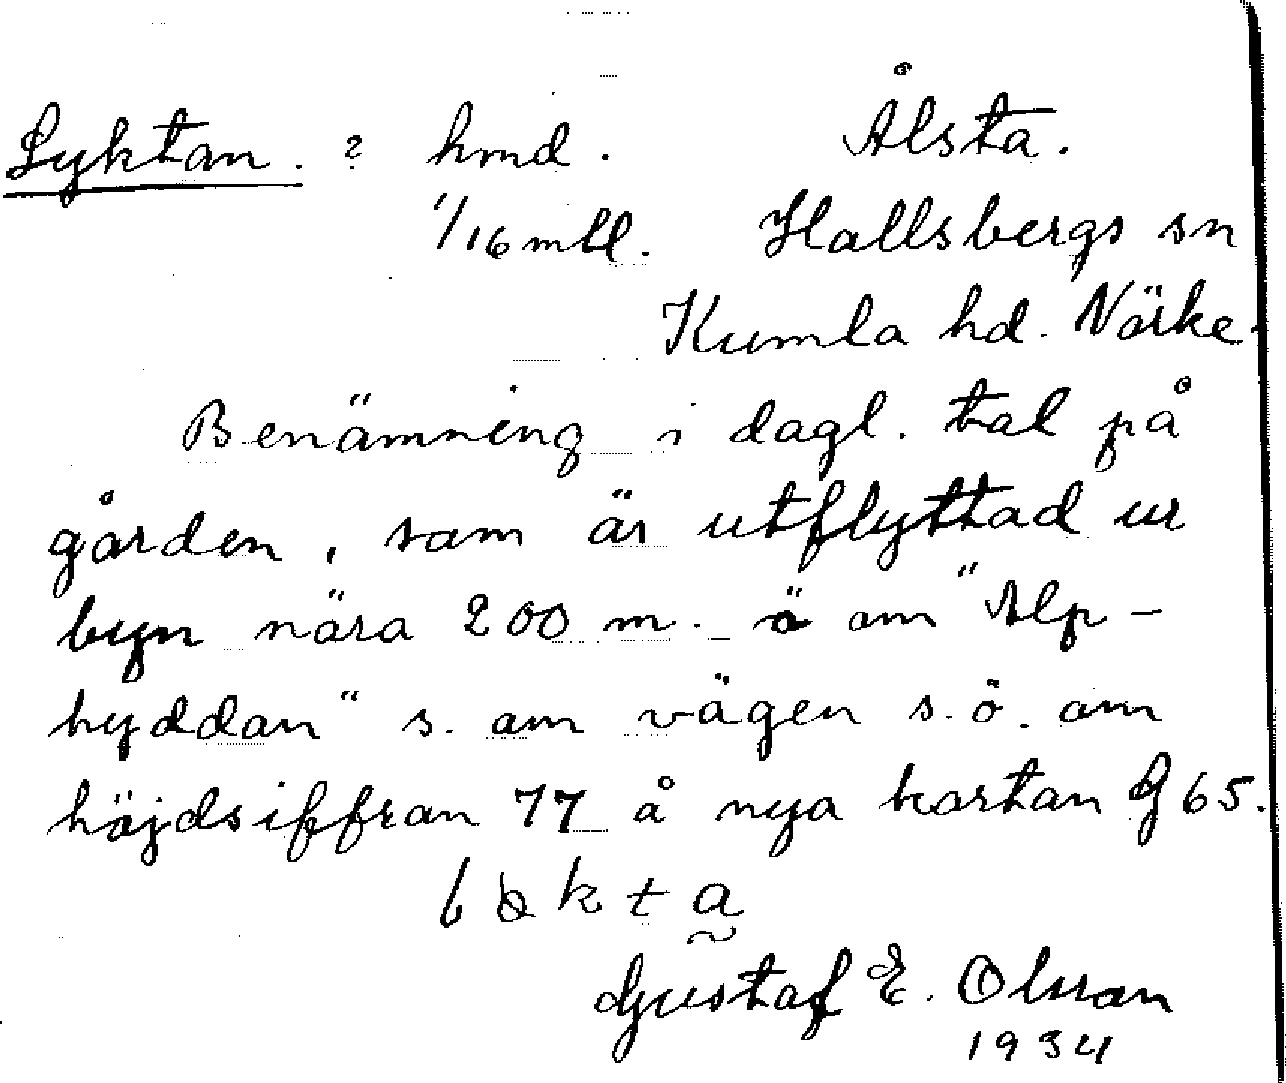 Lyktan. ? hmd. Ålsta.
1/16 mtl. Hallsbergs sn
Kumla hd. Närke.
Benämning i dagl. tal på
gården, som är utflyttad ur
byn nära 200 m. ö om "Alp-
hyddan" s. om vägen s.ö. om
höjdsiffran 77 å nya kartan G 65.
Gustaf E. Olsson
1934